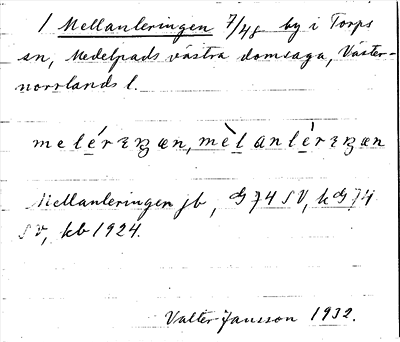 1 Mellanleringen 7/48 by i Torps
sn, Medelpads västra domsaga, Väster-
norrlands l.
Mellanleringen jb, G 74 SV, kG 74
SV, kb 1924.
Valter Jansson 1932.